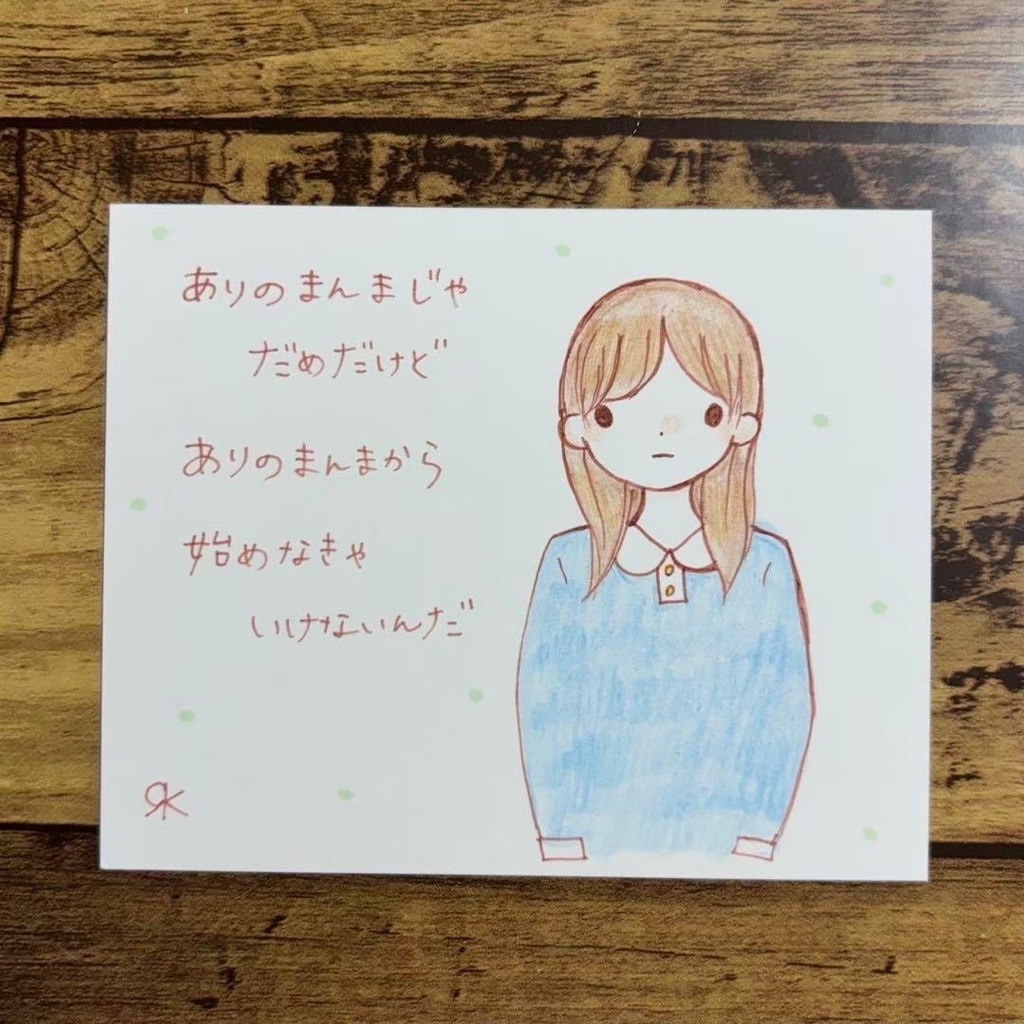 ありのまんまじゃ
だめだけど
ありのまんまから
始めなきゃ
いけないんだ
RK